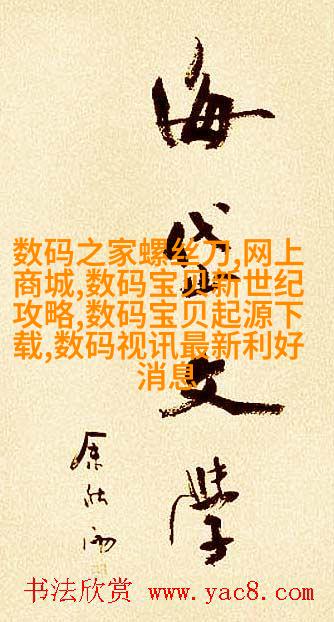 海岱文学
数码之家螺丝刀,网上
商城,数码宝贝新世纪
攻略,数码宝贝起源下
载,数码视讯最新利好
消息
书法欣赏 www.yac8.com